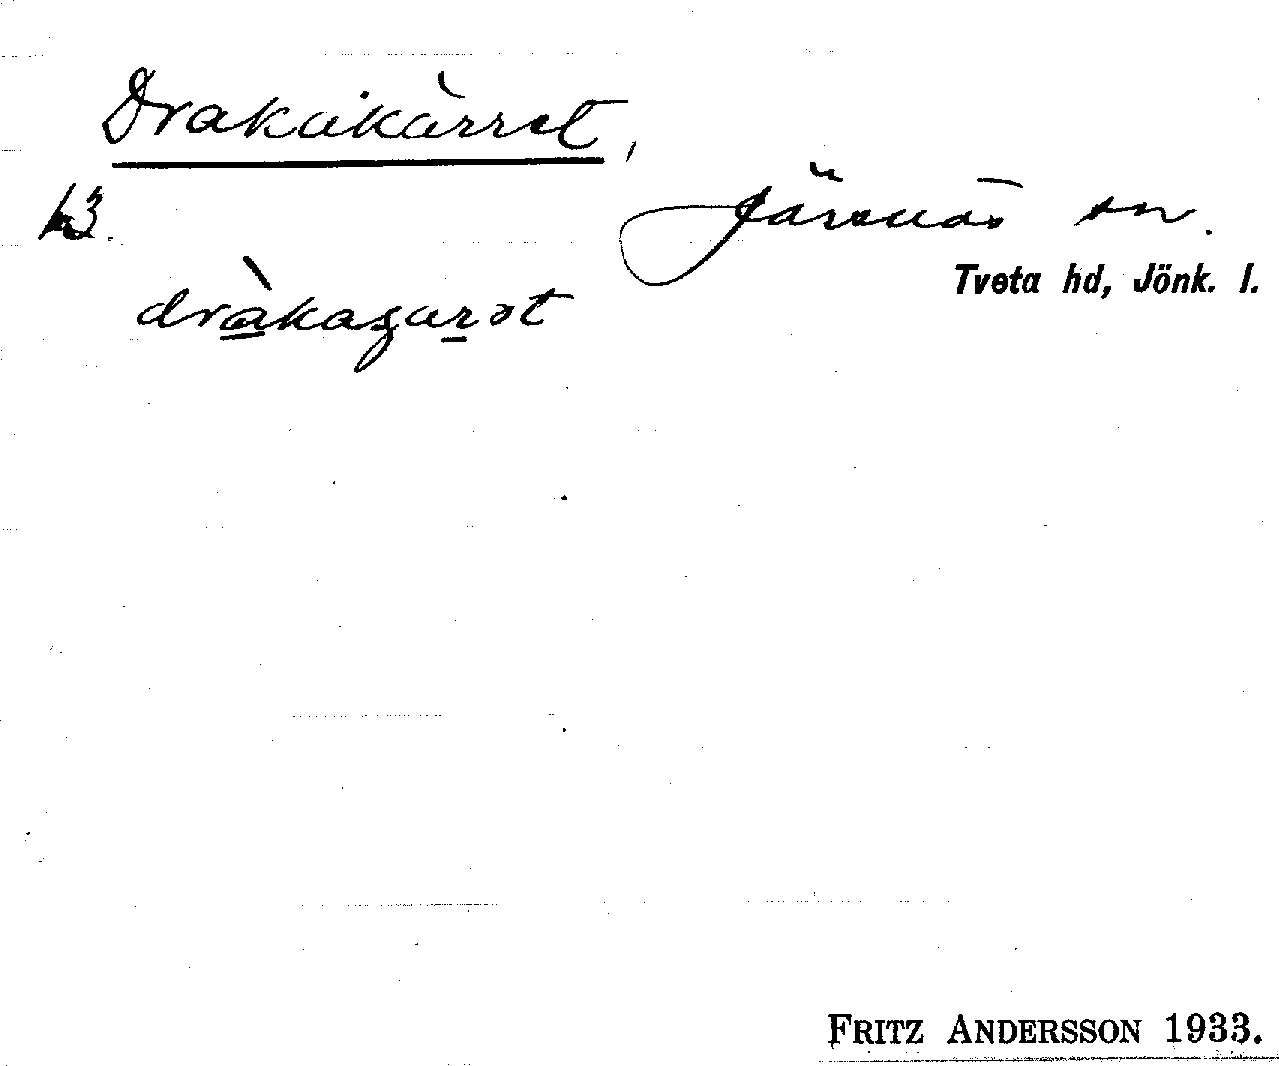 Drakakärret,
Järsnäs sn.
Tveta hd, Jönk. l.
FRITZ ANDERSSON 1933.